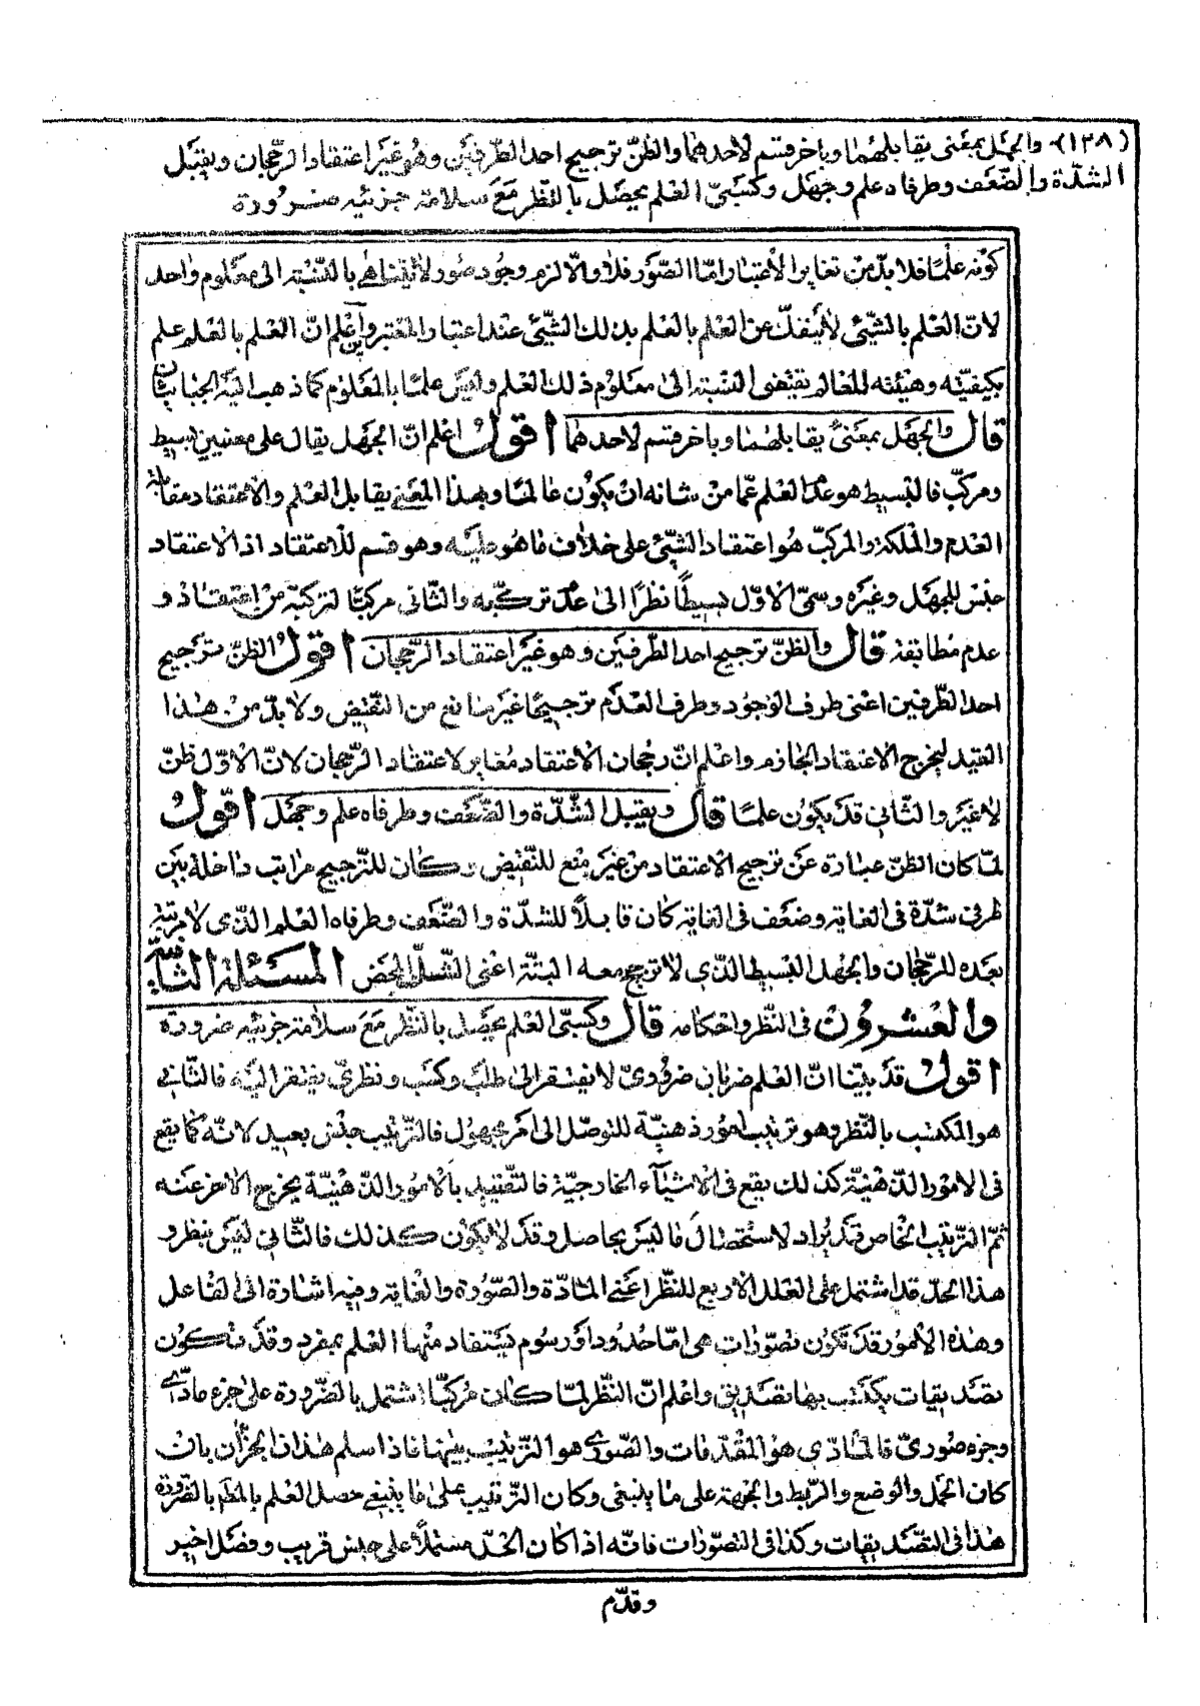 (١٣٨) والجهل بمعنى يقابلهما وبآخر قسم لاحدهما والظنّ ترجيح احد الطّرفين وهو غير اعتقاد الرّجحان ويقبل
الشدّة والضّعف وطرفاه علم وجهل وكسبيّ العلم يحصل بالنّظر مع سلامة جزئيه ضرورة
كونه علمًا فلا بدّ من تغاير الاعتبار امّا الصّور فلا والّا لزم وجود صور لا يتناهى بالنّسبة الى معلوم واحد
لانّ العلم بالشّيئ لا ينفكّ عن العلم بالعلم بذلك الشّيئ عند اعتبار المعتبرين واعلم انّ العلم بالعلم علم
بكيفيّته وهيئته للعالم يقتضى النّسبة الى معلوم ذلك العلم وليس علمًا بالمعلوم كما ذهب اليه الجبائيّان
قال والجهل بمعنىً يقابلهما وبآخر قسم لاحدهما اقول اعلم انّ الجهل يقال على معنيين بسيط
ومركّب فالبسيط هو عدم العلم عمّا من شانه ان يكون عالمًا وبهذا المعنى يقابل العلم والاعتقاد مقابلة
العدم والملكة والمركّب هو اعتقاد الشّيئ على خلاف ما هو عليه وهو قسم للاعتقاد اذ الاعتقاد
جنس للجهل وغيره وسمّى الاوّل بسيطًا نظرًا الى عدم تركّبه والثّانى مركبًا لتركّبه من اعتقاد و
عدم مطابقة قال والظنّ ترجيح احد الطّرفين وهو غير اعتقاد الرّجحان اقول الظنّ ترجيح
احد الطّرفين اعنى طرف الوجود وطرف العدم ترجيحًا غير مانع من النّقيض ولا بدّ من هذا
القيد ليخرج الاعتقاد الجازم واعلم انّ رجحان الاعتقاد مغاير لاعتقاد الرّجحان لانّ الاوّل ظنّ
لا غير والثّانى قد يكون علمًا قال ويقبل الشّدّة والضّعف وطرفاه علم وجهل اقول
لمّا كان الظنّ عبارة عن ترجيح الاعتقاد من غير منع للنّقيض وكان للتّرجيح مراتب داخلة بين
طرفى شدّة فى الغاية وضعف فى الغاية كان قابلًا للشدّة والضّعف وطرفاه العلم الّذى لا مرتبة
بعده للرّجحان والجهل البسيط الّذى لا ترجيح معه البتّة اعنى الشّكّ المحض المسئلة الثّانية
والعشرون فى النّظر واحكامه قال وكسبيّ العلم يحصل بالنّظر مع سلامة جزئيه ضرورة
اقول قد بيّنا انّ العلم ضربان ضروريّ لا يفتقر الى طلب وكسب ونظريّ يفتقر اليه فالثّانى
هو المكتسب بالنّظر وهو ترتيب امور ذهنيّة للتوصّل الى امر مجهول فالتّرتيب جنس بعيد لانّه كما يقع
فى الامور الذّهنيّة كذلك يقع فى الاشيآء الخارجيّة فالتّقييد بالامور الذّهنيّة يخرج الآخر عنه
ثمّ التّرتيب الخاص قد يراد لاستحصال ما ليس بحاصل وقد لا يكون كذلك فالثّانى ليس بنظر و
هذا الحدّ قد اشتمل على العلل الاربع للنّظر اعنى المادّة والصّورة والغاية وفيه اشارة الى الفاعل
وهذه الامور قد تكون تصوّرات هى امّا حدود او رسوم يستفاد منها العلم بمفرد وقد تكون
تصديقات يكتسب بها تصديق واعلم انّ النّظر لمّا كان مركبًا اشتمل بالضّرورة على جزء مادّى
وجزء صوريّ فالمادّى هو المقدّمات والصّورى هو التّرتيب بينها فاذا سلم هذان الجزءان بان
كان الحمل والوضع والرّبط والجهة على ما ينبغى وكان التّرتيب على ما ينبغى حصل العلم بالمط بالضّرورة
هذا فى التّصديقات وكذا فى التصوّرات فانّه اذا كان الحدّ مشتملًا على جنس قريب وفصل اخير
وقدّم